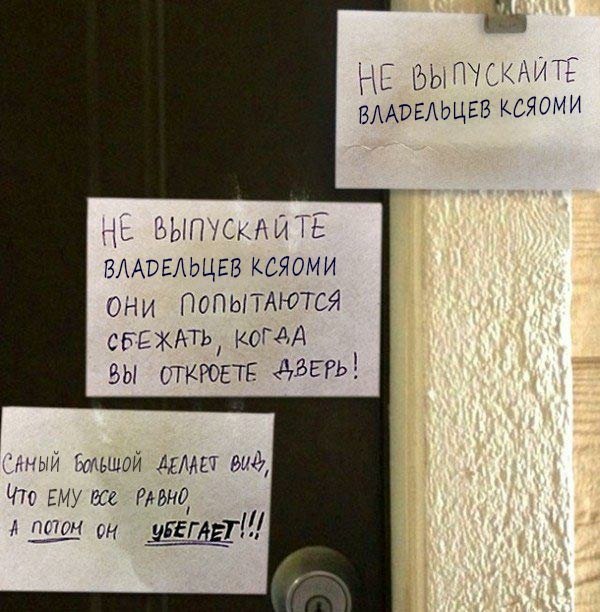 НЕ ВЫПУСКАЙТЕ
ВЛАДЕЛЬЦЕВ КСЯОМИ
НЕ ВЫПУСКАЙТЕ
ВЛАДЕЛЬЦЕВ КСЯОМИ
ОНИ ПОПЫТАЮТСЯ
СБЕЖАТЬ, КОГДА
ВЫ ОТКРОЕТЕ ДВЕРЬ!
САМЫЙ БОЛЬШОЙ ДЕЛАЕТ ВИД,
ЧТО ЕМУ ВСЕ РАВНО,
А ПОТОМ ОН УБЕГАЕТ!!!